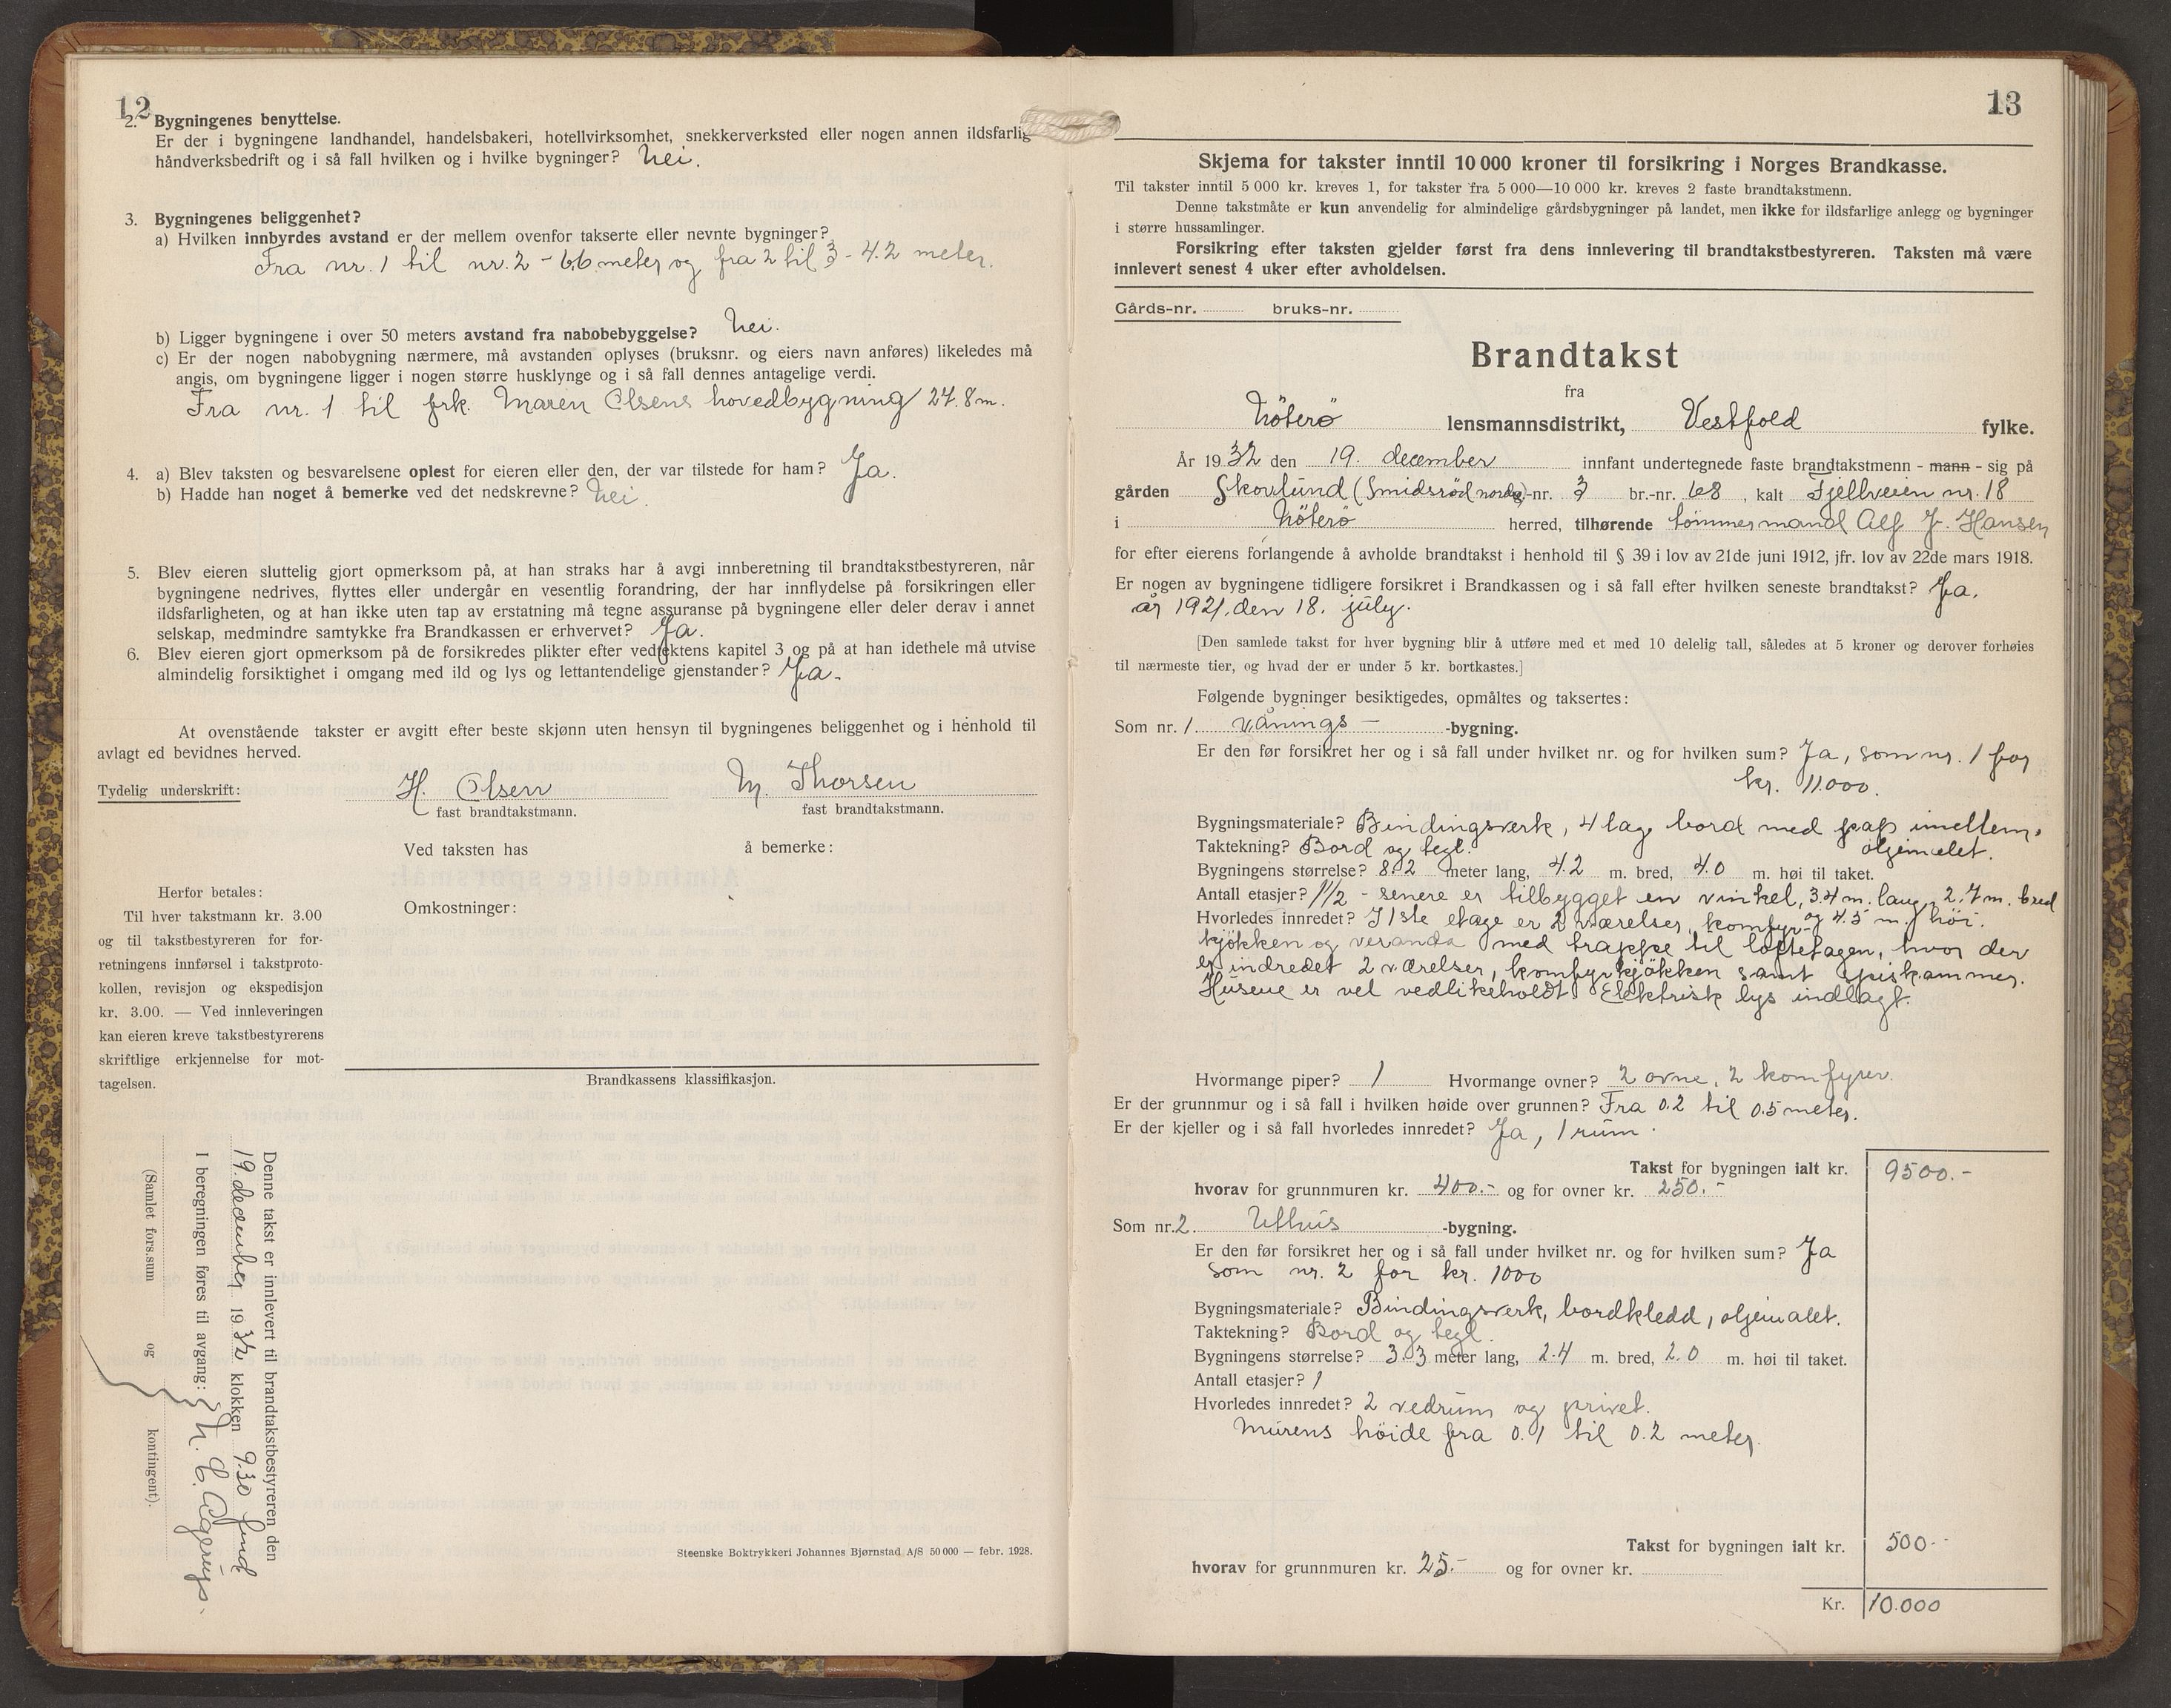 12
2. Bygningenes benyttelse.
Er der i bygningene landhandel, handelsbakeri, hotellvirksomhet, snekkerverksted eller nogen annen ildsfarlig
håndverksbedrift og i så fall hvilken og i hvilke bygninger? Nei.
3. Bygningenes beliggenhet?
a) Hvilken innbyrdes avstand er der mellem ovenfor takserte eller nevnte bygninger?
Fra nr. 1 til nr. 2 - 6.6 meter og fra 2 til 3 - 4.2 meter.
b) Ligger bygningene i over 50 meters avstand fra nabobebyggelse? Nei.
c) Er der nogen nabobygning nærmere, må avstanden oplyses (bruksnr. og eiers navn anføres) likeledes må
angis, om bygningene ligger i nogen større husklynge og i så fall dennes antagelige verdi.
Fra nr. 1 til frk. Maren Olsens hovedbygning 27.8 m.
4. a) Blev taksten og besvarelsene oplest for eieren eller den, der var tilstede for ham? Ja.
b) Hadde han noget å bemerke ved det nedskrevne? Nei.
5. Blev eieren sluttelig gjort opmerksom på, at han straks har å avgi innberetning til brandtakstbestyreren, når
bygningene nedrives, flyttes eller undergår en vesentlig forandring, der har innflydelse på forsikringen eller
ildsfarligheten, og at han ikke uten tap av erstatning må tegne assuranse på bygningene eller deler derav i annet
selskap, medmindre samtykke fra Brandkassen er erhvervet? Ja.
6. Blev eieren gjort opmerksom på de forsikredes plikter efter vedtektens kapitel 3 og på at han idethele må utvise
almindelig forsiktighet i omgang med ild og lys og lettantendelige gjenstander? Ja.
At ovenstående takster er avgitt efter beste skjønn uten hensyn til bygningenes beliggenhet og i henhold til
avlagt ed bevidnes herved.
Tydelig underskrift: H. Olsen M. Thorsen
fast brandtakstmann. fast brandtakstmann.
Ved taksten has å bemerke:
Omkostninger:
Herfor betales:
Til hver takstmann kr. 3.00
og til takstbestyreren for for-
retningens innførsel i takstproto-
kollen, revisjon og ekspedisjon
kr. 3.00. — Ved innleveringen
kan eieren kreve takstbestyrerens
skriftlige erkjennelse for mot-
tagelsen.
Brandkassens klassifikasjon.
Denne takst er innlevert til brandtakstbestyreren den
19. december 1932 klokken 9.30 fmd
I beregningen føres til avgang:
(Samlet fors.sum og kontingent).
Steenske Boktrykkeri Johannes Bjørnstad A/S 50 000 — febr. 1928.
13
Skjema for takster inntil 10 000 kroner til forsikring i Norges Brandkasse.
Til takster inntil 5 000 kr. kreves 1, for takster fra 5 000—10 000 kr. kreves 2 faste brandtakstmenn.
Denne takstmåte er kun anvendelig for almindelige gårdsbygninger på landet, men ikke for ildsfarlige anlegg og bygninger
i større hussamlinger.
Forsikring efter taksten gjelder først fra dens innlevering til brandtakstbestyreren. Taksten må være
innlevert senest 4 uker efter avholdelsen.
Gårds-nr. bruks-nr.
Brandtakst
fra
Nöterö lensmannsdistrikt, Vestfold fylke.
År 1932 den 19. december innfant undertegnede faste brandtakstmenn - mann - sig på
gården Skovlund (Smidsröd nordre)-nr. 3 br.-nr. 68, kalt Fjellveien nr. 18
i Nöterö herred, tilhørende tömmermand Alf J. Hansen
for efter eierens forlangende å avholde brandtakst i henhold til § 39 i lov av 21de juni 1912, jfr. lov av 22de mars 1918.
Er nogen av bygningene tidligere forsikret i Brandkassen og i så fall efter hvilken seneste brandtakst? Ja.
år 1921, den 18. july.
[Den samlede takst for hver bygning blir å utføre med et med 10 delelig tall, således at 5 kroner og derover forhøies
til nærmeste tier, og hvad der er under 5 kr. bortkastes.]
Følgende bygninger besiktigedes, opmåltes og taksertes:
Som nr. 1. vånings- -bygning.
Er den før forsikret her og i så fall under hvilket nr. og for hvilken sum? Ja, som nr. 1 for
kr. 11.000.
Bygningsmateriale? Bindingsverk, 4 lag bord med pap imellem,
oljemalet.
Taktekning? Bord og tegl.
Bygningens størrelse? 8.2 meter lang, 4.2 m. bred, 4.0 m. høi til taket.
Antall etasjer? 1 1/2 - senere er tilbygget en vinkel, 3.4 m. lang, 2.7 m. bred
og 4.5 m. höi.
Hvorledes innredet? I 1ste etage er 2 værelser, komfyr-
kjökken og veranda med trappe til loftetagen, hvor der
er indredet 2 værelser, komfyrkjökken samt spiskammer.
Husene er vel vedlikeholdt. Elektrisk lys indlagt.
Hvormange piper? 1 Hvormange ovner? 2 ovne, 2 komfyrer.
Er der grunnmur og i så fall i hvilken høide over grunnen? Fra 0.2 til 0.5 meter.
Er der kjeller og i så fall hvorledes innredet? Ja, 1 rum.
Takst for bygningen ialt kr. 9500.-
hvorav for grunnmuren kr. 400.- og for ovner kr. 250.-
Som nr. 2. Uthus -bygning.
Er den før forsikret her og i så fall under hvilket nr. og for hvilken sum? Ja
som nr. 2 for kr. 1000
Bygningsmateriale? Bindingsverk, bordkledd, oljemalet.
Taktekning? Bord og tegl.
Bygningens størrelse? 3.3 meter lang, 2.4 m. bred, 2.0 m. høi til taket.
Antall etasjer? 1
Hvorledes innredet? 2 vedrum og privet.
Murens höide fra 0.1 til 0.2 meter.
Takst for bygningen ialt kr. 500.-
hvorav for grunnmuren kr. 25.- og for ovner kr.
Kr. 10.000